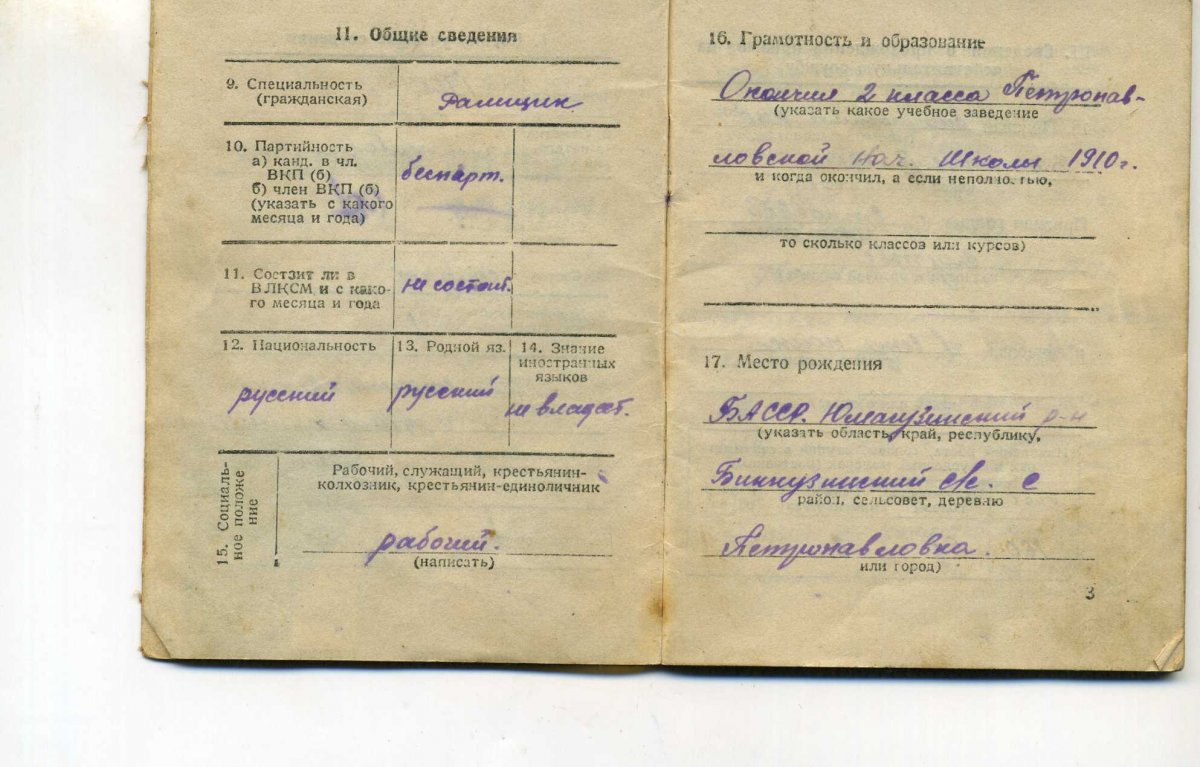 II. Общие сведения
9. Специальность
(гражданская)
Рамщик
10. Партийность
а) канд. в чл.
ВКП (б)
б) член ВКП (б)
(указать с какого
месяца и года)
беспарт.
11. Состоит ли в
ВЛКСМ и с како-
го месяца и года
не состоит.
12. Национальность
русский
13. Родной яз.
русский
14. Знание
иностранных
языков
не владеет.
15. Социаль-
ное положе
ние
Рабочий, служащий, крестьянин-
колхозник, крестьянин-единоличник
рабочий.
(написать)
16. Грамотность и образование
Окончил 2 класса Петропав-
(указать какое учебное заведение
ловской нач. школы 1910 г.
и когда окончил, а если неполностью,
то сколько классов или курсов)
17. Место рождения
БАССР. Юмагузинский р-н
(указать область, край, республику,
Биккузинский с/с. с
район, сельсовет, деревню
Петропавловка.
или город)
3